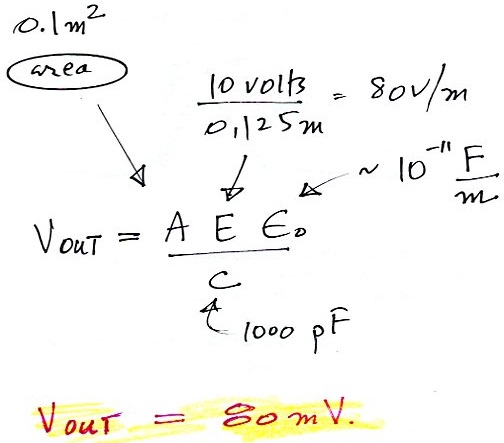 0.1m²
area
10 volts
0,125m
= 80V/m
~ 10⁻¹¹ F/m
VOUT = A E ϵ₀
C
1000 pF
VOUT = 80 mV.